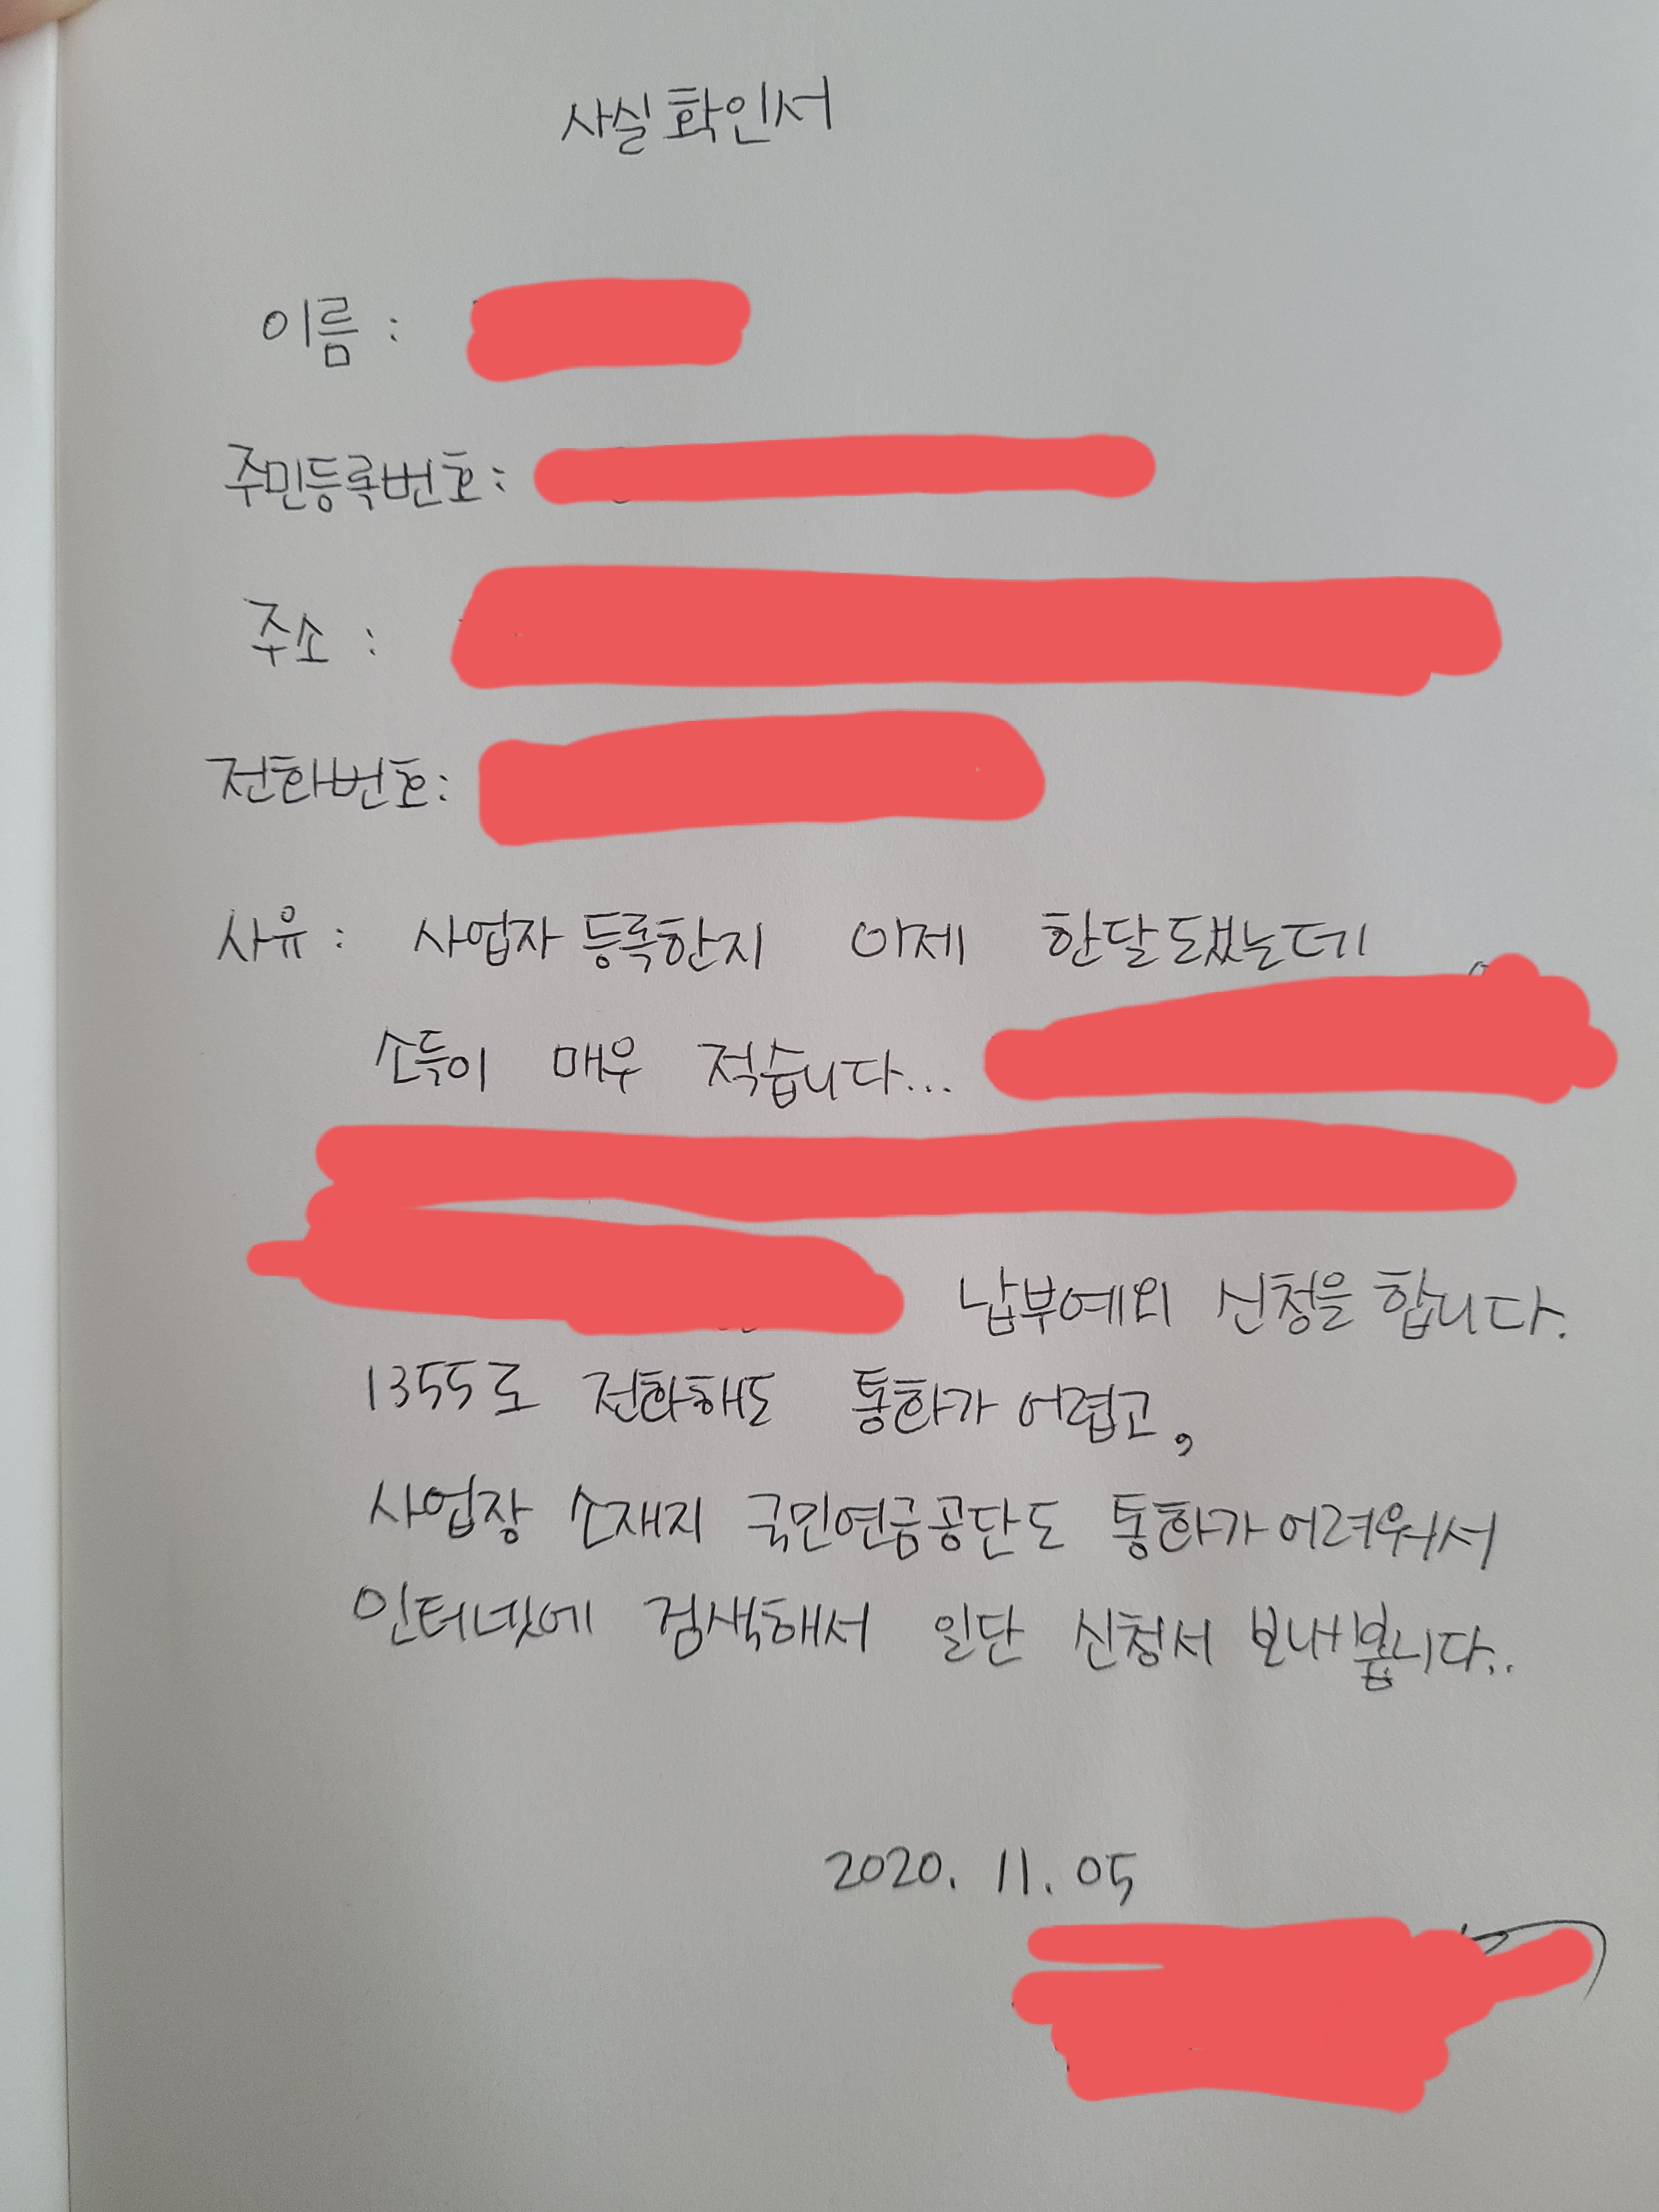 사실확인서
이름 :
주민등록번호 :
주소 :
전화번호 :
사유 : 사업자 등록한지 이제 한달 됐는데
소득이 매우 적습니다...
납부예외 신청을 합니다.
1355로 전화해도 통화가 어렵고,
사업장 소재지 국민연금공단도 통화가 어려워서
인터넷에 검색해서 일단 신청서 보내봅니다..
2020. 11. 05